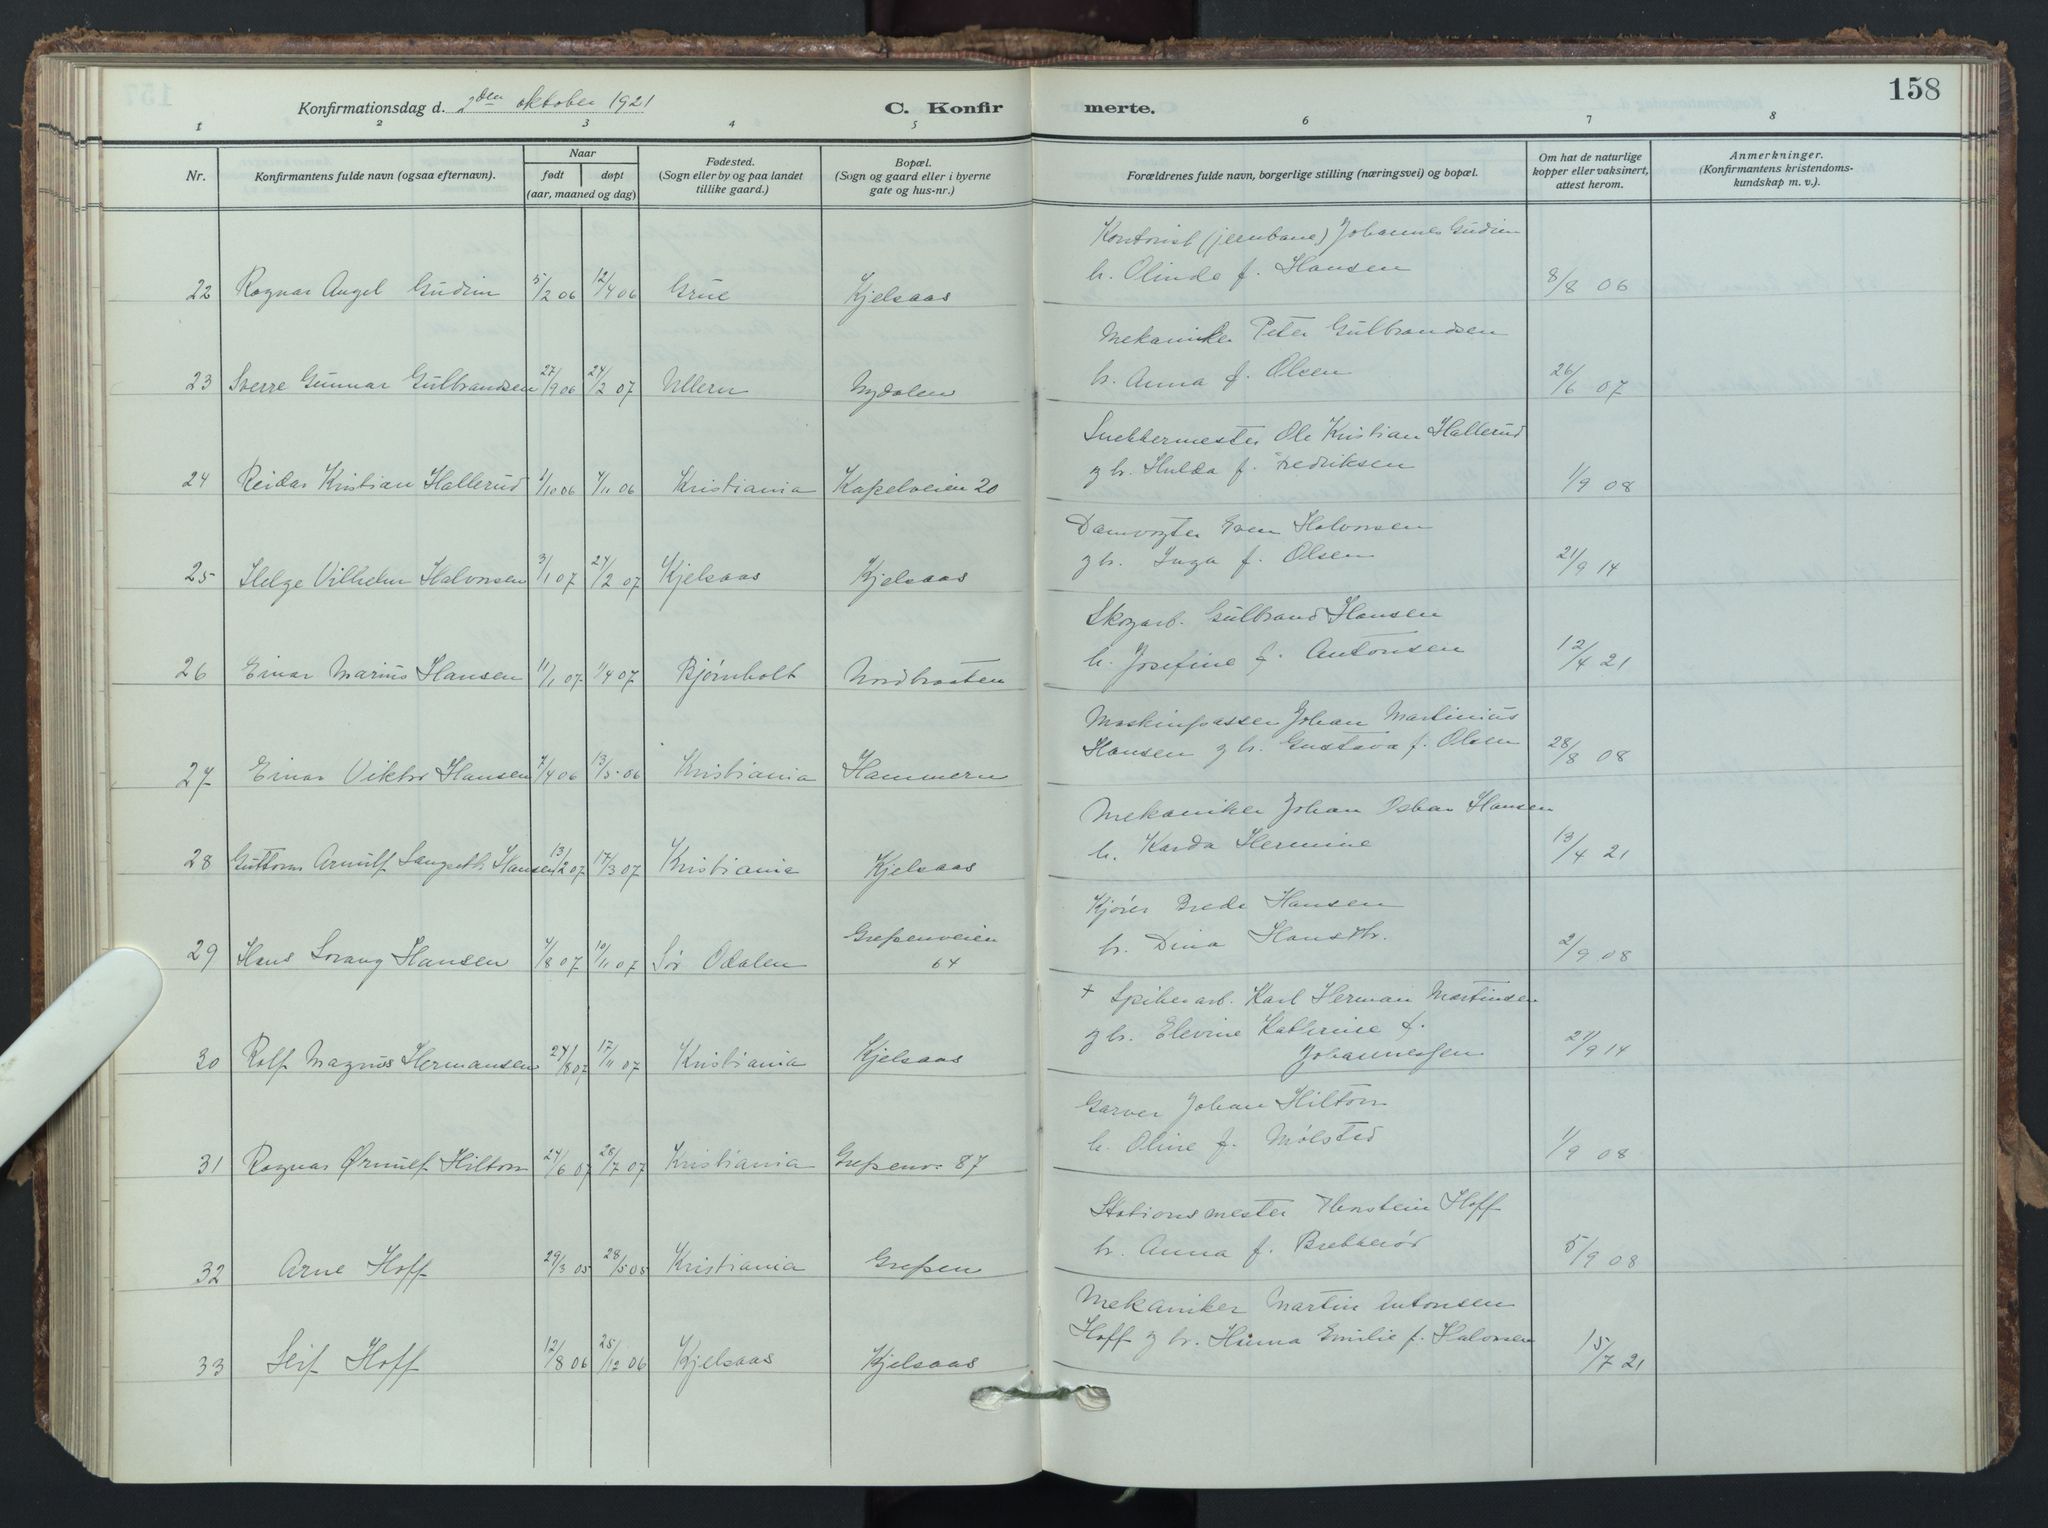 158
Konfirmationsdag d. 2den oktober 1921 C. Konfirmerte.
1 2 3 4 5 6 7 8
Nr. Konfirmantens fulde navn (ogsaa efternavn). Naar født døpt (aar, maaned og dag) Fødested. (Sogn eller by og paa landet tillike gaard.) Bopæl. (Sogn og gaard eller i byerne gate og hus-nr.) Forældrenes fulde navn, borgerlige stilling (næringsvei) og bopæl. Om hat de naturlige kopper eller vaksinert, attest herom. Anmerkninger. (Konfirmantens kristendomskundskap m. v.).
Kontorist (jernbane) Johannes Gudim
22 Ragnar Angel Gudim 5/2 06 12/4 06 Grue Kjelsaas h. Olinde f. Hansen 8/8 06
Mekaniker Peter Gulbrandsen
23 Sverre Gunnar Gulbrandsen 27/9 06 24/2 07 Ullern Nydalen h. Anna f. Olsen 26/6 07
Snekkermester Ole Kristian Hallerud
24 Reidar Kristian Hallerud 1/10 06 4/11 06 Kristiania Kapelveien 20 g h. Hulda f. Fredriksen 1/9 08
Damvogter Even Halvorsen
25 Helge Vilhelm Halvorsen 3/1 07 24/2 07 Kjelsaas Kjelsaas g h. Inga f. Olsen 21/9 14
Skogarb. Gulbrand Hansen
26 Einar Marius Hansen 11/1 07 1/4 07 Bjørnholt Nordbraaten h. Josefine f. Antonsen 12/4 21
Maskinpasser Johan Martinius
27 Einar Viktor Hansen 7/4 06 13/5 06 Kristiania Hammern Hansen g h. Gustava f. Olsen 28/8 08
Mekaniker Johan Oskar Hansen
28 Guttorm Arnulf Hansen 13/2 07 17/3 07 Kristiania Kjelsaas h. Karda Hermine 13/4 21
Kjører Brede Hansen
29 Hans Sorang Hansen 4/8 07 10/11 07 Sør Odalen Grefsenveien 64 h. Dina Hansdtr. 2/9 08
+ Spikerarb. Karl Herman Martinsen
30 Rolf Magnus Hermansen 24/8 07 17/11 07 Kristiania Kjelsaas g h. Elevine Katherine f. Johannessen 21/9 14
Garver Johan Hilton
31 Ragnar Ørnulf Hilton 24/6 07 28/7 07 Kristiania Grefsenv. 87 h. Oline f. Mølsted 1/9 08
Stationsmester Thorstein Hoff
32 Arne Hoff 29/3 05 28/5 05 Kristiania Grefsen h. Anna f. Brekkerød 5/9 08
Mekaniker Martin Antonsen
33 Leif Hoff 12/8 06 25/12 06 Kjelsaas Kjelsaas Hoff g h. Hanna Emilie f. Halvorsen 15/7 21